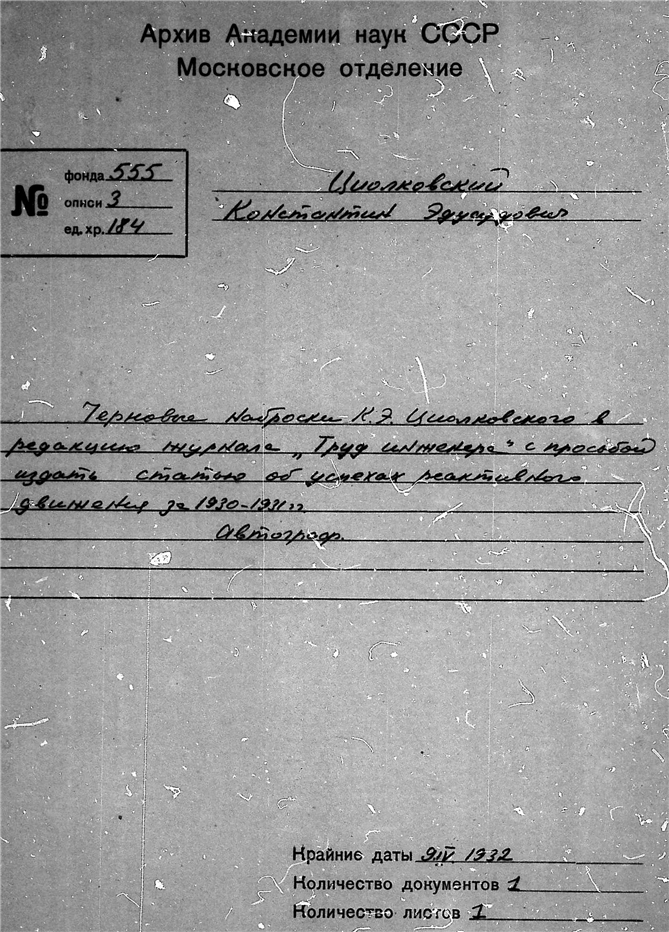 Архив Академии наук СССР
Московское отделение
№
фонда 555
описи 3
ед. хр. 184
Циолковский
Константин Эдуардович
Черновые наброски К.Э. Циолковского в
редакцию журнала „Труд инженера" с просьбой
издать статью об успехах реактивного
движения за 1930-1931 гг
Автограф.
Крайние даты 9 IV 1932
Количество документов 1
Количество листов 1